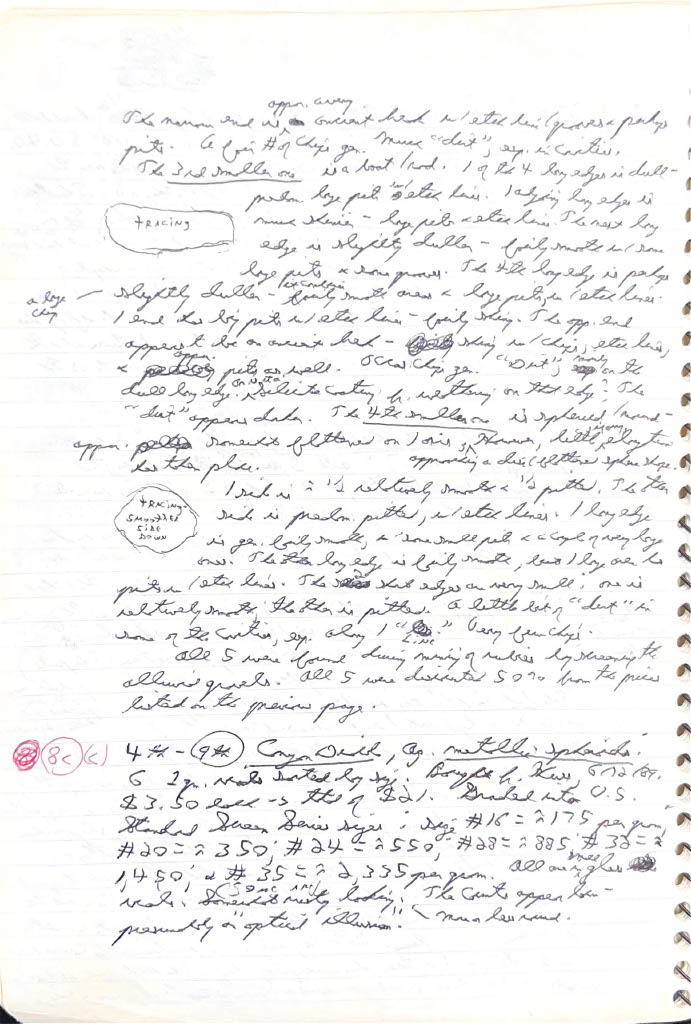 appar. a very
The narrow end is ancient break w/ etch lines/grooves & perhaps
pits. A few # of chips gen. Much "dirt", esp. in cavities.
The 3rd smaller one is a boat/rod. 1 of the 4 long edges is dull-
predom. large pits w/ etch lines. 1 adjoining long edge is
TRACING
much shinier - large pits & etch lines. The next long
edge is slightly duller - fairly smooth w/ some
large pits & some grooves. The 4th long edge is perhaps
a large chip
slightly duller - fairly smooth areas & large pits, w/ etch lines.
1 end has big pits w/ etch lines - fairly shiny. The opp. end
appears to be an ancient break - shiny w/ chips, etch lines,
& appar. pits as well. Occas. chips gen. "Dirt", mostly on the
dull long edge. Silicate coating fr. weathering on this edge? The
"dirt" appears darker. The 4th smaller one is spheroid/round-
appar. somewhat flattened on 1 axis. However, little elongation
has taken place. approaching a disc/flattened sphere shape.
1 side is ≈ ½ relatively smooth & ½ pitted. The other
TRACING-
SMOOTHER
SIDE
DOWN
side is predom. pitted, w/ etch lines. 1 long edge
is gen. fairly smooth, w/ some small pits & a couple of very large
ones. The other long edge is fairly smooth, but 1 large area has
pits w/ etch lines. The short edges are very small: one is
relatively smooth; the other is pitted. A little bit of "dirt" in
some of the cavities, esp. along 1 "line." Very few chips.
All 5 were found during mining of rubies by screening the
alluvial gravels. All 5 were discounted 50% from the prices
listed on the previous page.
8c (c) 4th - 9th Canyon Diablo, Ag. metallic spheroids.
6 2 gm. vials sorted by size. Bought fr. 6/12/89.
$3.50 each -> ttl of $21. Graded into U.S.
Standard Screen Series sizes: size #16 = ≈175 per gram;
#20 = ≈350; #24 = ≈550; #28 = ≈885; #32 = ≈
1,450; & #35 = ≈2,335 per gram. All are in small glass
vials. Somewhat rusty looking. The counts appear low -
presumably an "optical illusion." more or less round.